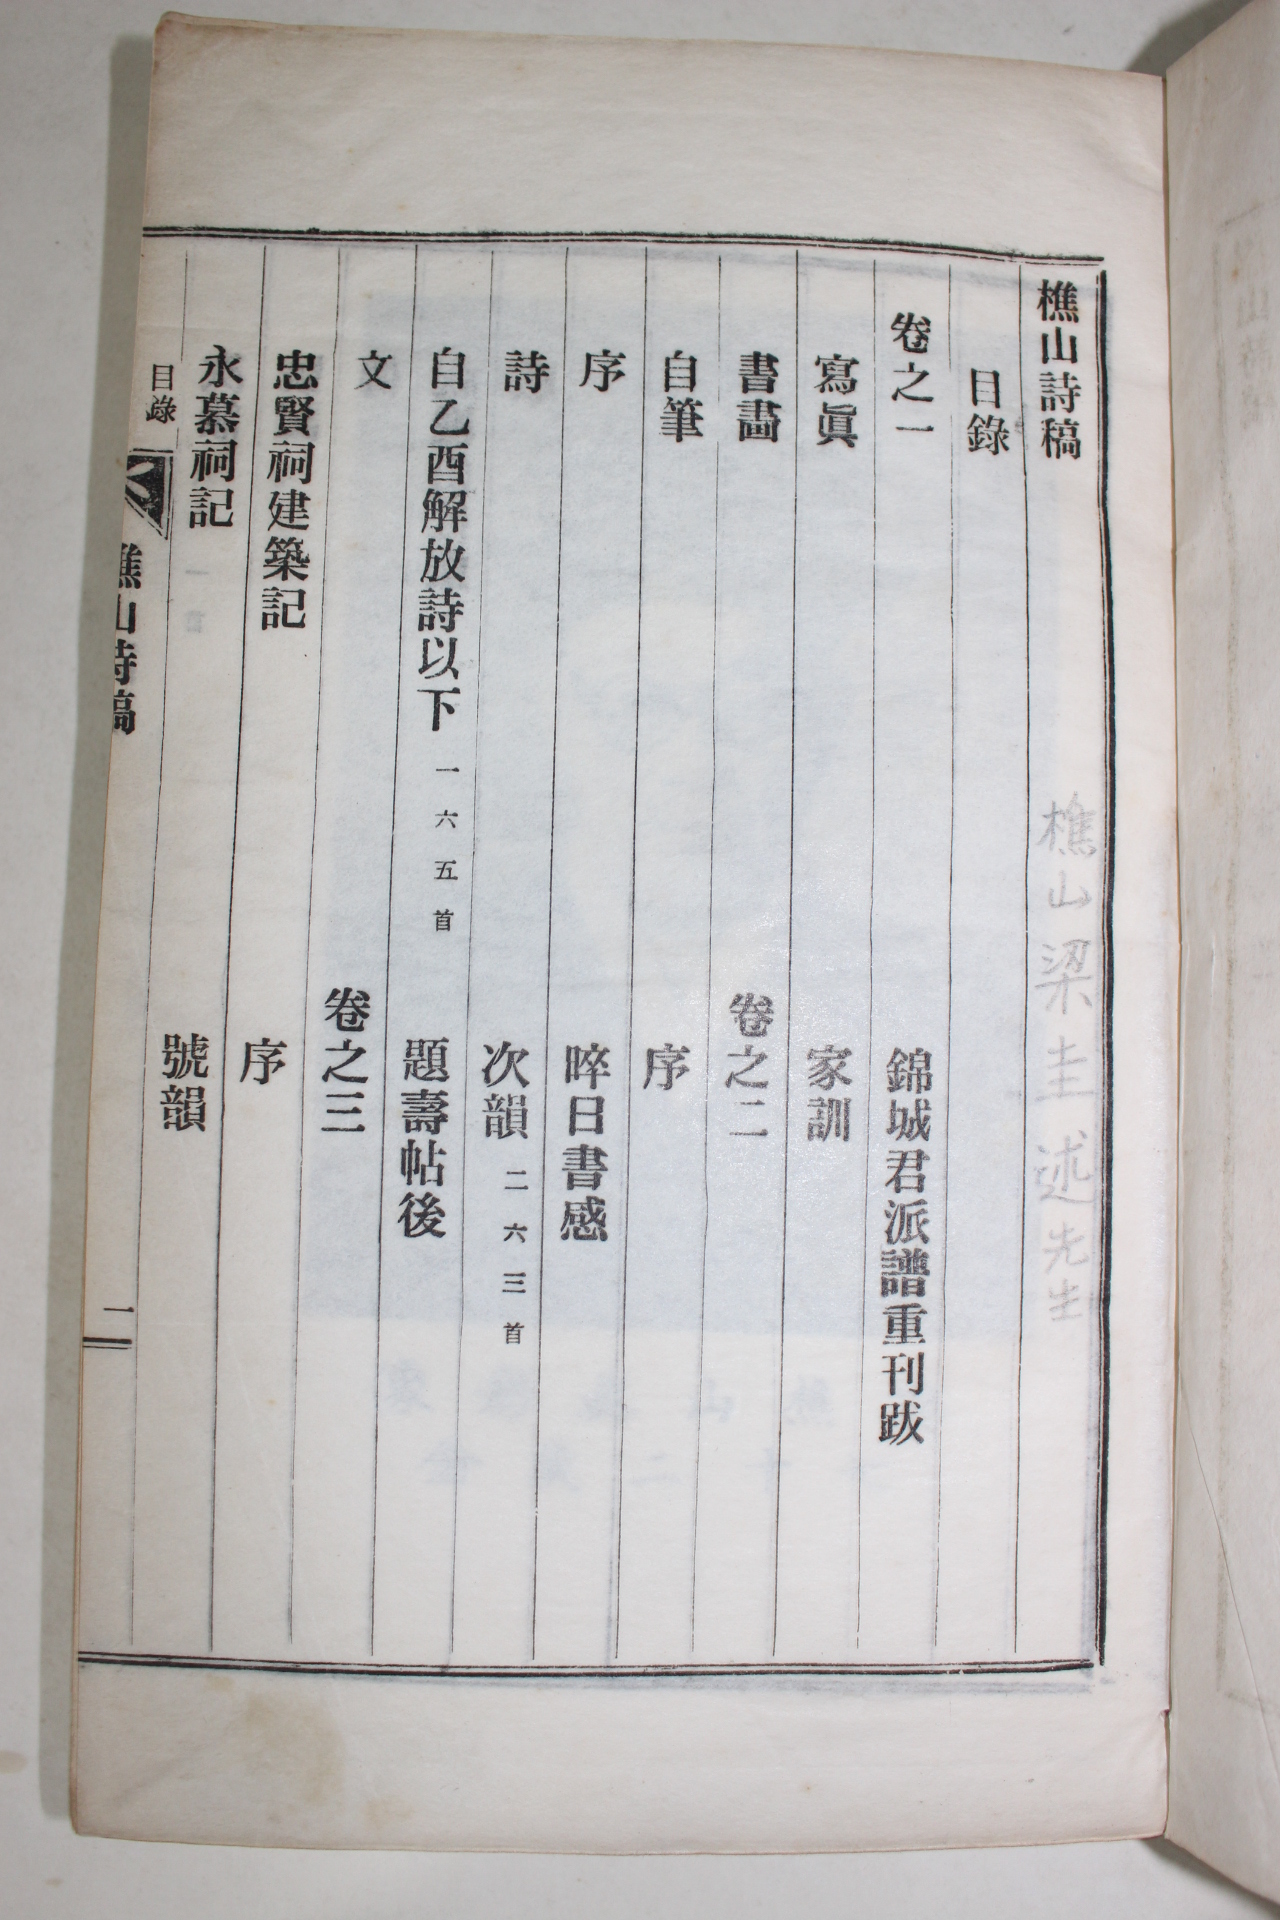 樵山詩稿
樵山梁圭述先生
目錄
卷之一
寫眞
書畫
自筆
序
詩
自乙酉解放詩以下 一六五首
文
忠賢祠建築記
永慕祠記
錦城君派譜重刊跋
家訓
卷之二
序
晬日書感
次韻 二六三首
題壽帖後
卷之三
序
號韻
目錄
樵山詩稿
一